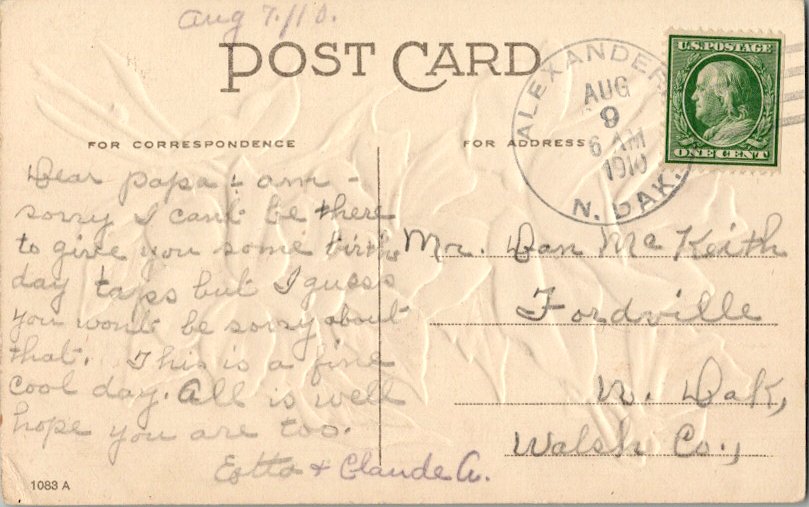 Aug 7./10.
POST CARD
ALEXANDER
AUG
9
6 AM
1910
N. DAK.
U.S. POSTAGE
ONE CENT
FOR CORRESPONDENCE
FOR ADDRESS
Dear papa I am -
sorry I cant be there
to give you some birth
day taps but I guess
you wont be sorry about
that. This is a fine
cool day. All is well
hope you are too.
& Claude A.
Mr. Dan McKeith
Fordville
N. Dak,
Walsh Co.,
1083 A